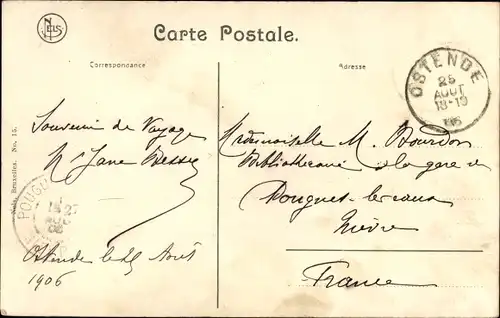 NELS
Carte Postale.
Correspondance
Adresse
OSTENDE
25
AOUT
18-19
1906
Souvenir de Voyage
Ostende le 25 Août
1906
Mademoiselle M. Bourdon
Bibliothécaire à la gare de
Pougues-les-eaux
Nièvre
France
Nels, Bruxelles. No. 15.
POUGU